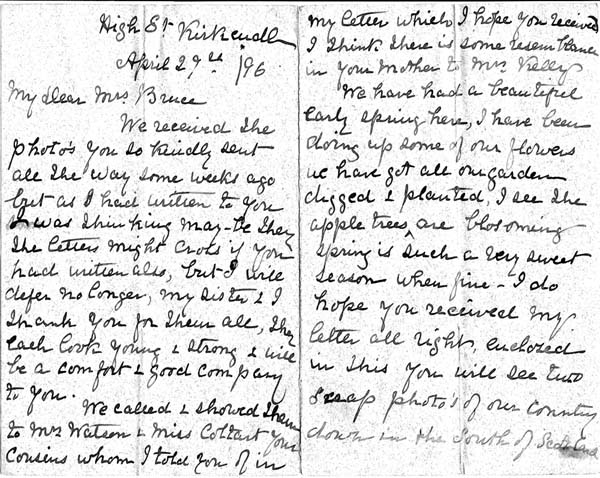 High St Kirkcudb
April 27th /96
My dear Mrs Bruce
We received the
photo's you so kindly sent
all the way some weeks ago
but as I had written to you
I was thinking may-be they
the letters might cross if you
had written also, but I will
defer no longer, my sister & I
thank you for them all, they
each look young & strong & will
be a comfort & good company
to you.
We called & showed them
to Mrs Watson & Miss Coltart your
cousins whom I told you of in
my letter which I hope you received
I think there is some resemblance
in your Mother to Mrs Kelly
We have had a beautiful
early spring here, I have been
doing up some of our flowers
we have got all our garden
digged & planted, I see the
apple trees are blosoming
spring is such a very sweet
season when fine - I do
hope you received my
letter all right, enclosed
in this you will see two
scrap photo's of our country
down in the South of Scotland